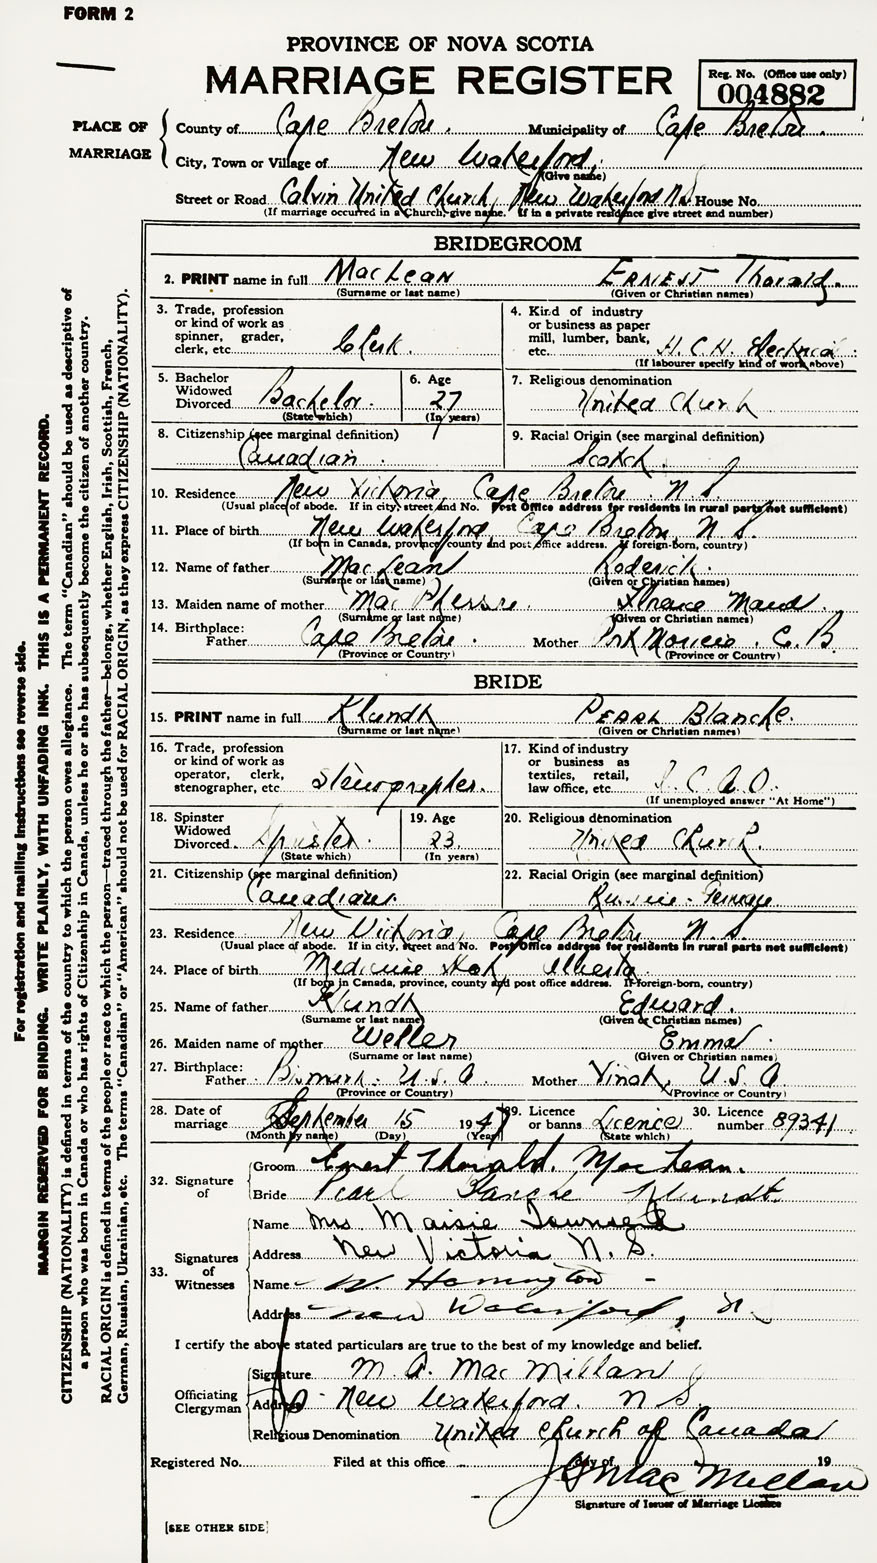 FORM 2
PROVINCE OF NOVA SCOTIA
MARRIAGE REGISTER
Reg. No. (Office use only)
004882
PLACE OF MARRIAGE
County of Cape Breton. Municipality of Cape Breton.
City, Town or Village of New Waterford,
(Give name)
Street or Road Calvin United Church, New Waterford N.S. House No.
(If marriage occurred in a Church, give name. If in a private residence give street and number)
BRIDEGROOM
2. PRINT name in full MacLean ERNEST Thorald.
(Surname or last name) (Given or Christian names)
3. Trade, profession or kind of work as spinner, grader, clerk, etc. Clerk.
4. Kind of industry or business as paper mill, lumber, bank, etc. H.C.H. Electrical
(If labourer specify kind of work above)
5. Bachelor Widowed Divorced Bachelor.
(State which)
6. Age 27
(In years)
7. Religious denomination United Church
8. Citizenship (see marginal definition) Canadian.
9. Racial Origin (see marginal definition) Scotch.
10. Residence New Victoria, Cape Breton. N.S.
(Usual place of abode. If in city, street and No. Post Office address for residents in rural parts not sufficient)
11. Place of birth New Waterford, Cape Breton, N.S.
(If born in Canada, province, county and post office address. If foreign-born, country)
12. Name of father MacLean Roderick.
(Surname or last name) (Given or Christian names)
13. Maiden name of mother Mac Maud.
(Surname or last name) (Given or Christian names)
14. Birthplace: Father Cape Breton. Mother Port Morien. C.B.
(Province or Country) (Province or Country)
BRIDE
15. PRINT name in full Klundt PEARL Blanche.
(Surname or last name) (Given or Christian names)
16. Trade, profession or kind of work as operator, clerk, stenographer, etc. Stenographer.
17. Kind of industry or business as textiles, retail, law office, etc.
(If unemployed answer "At Home")
18. Spinster Widowed Divorced. Spinster.
(State which)
19. Age 23
(In years)
20. Religious denomination United Church.
21. Citizenship (see marginal definition) Canadian.
22. Racial Origin (see marginal definition) Russian - German
23. Residence New Victoria, Cape Breton N.S.
(Usual place of abode. If in city, street and No. Post Office address for residents in rural parts not sufficient)
24. Place of birth Medicine Hat, Alberta.
(If born in Canada, province, county and post office address. If foreign-born, country)
25. Name of father Klundt Edward.
(Surname or last name) (Given or Christian names)
26. Maiden name of mother Weller Emma.
(Surname or last name) (Given or Christian names)
27. Birthplace: Father Bismark. U.S.A. Mother U.S.A
(Province or Country) (Province or Country)
28. Date of marriage September 15 1947
(Month by name) (Day) (Year)
29. Licence or banns Licence
(State which)
30. Licence number 89341.
32. Signature of
Groom Ernest Thorald. MacLean.
Bride Pearl Blanche Klundt.
33. Signatures of Witnesses
Name Mrs Maisie Townsend
Address New Victoria N.S.
Name W. Harrington
Address New Waterford, N.
I certify the above stated particulars are true to the best of my knowledge and belief.
Officiating Clergyman
Signature M A. MacMillan
Address New Waterford. N S.
Religious Denomination United Church of Canada
Registered No. Filed at this office day of 19
MacMillan
Signature of Issuer of Marriage Licence
[SEE OTHER SIDE]
For registration and mailing instructions see reverse side.
MARGIN RESERVED FOR BINDING. WRITE PLAINLY, WITH UNFADING INK. THIS IS A PERMANENT RECORD.
CITIZENSHIP (NATIONALITY) is defined in terms of the country to which the person owes allegiance. The term "Canadian" should be used as descriptive of
a person who was born in Canada or who has rights of Citizenship in Canada, unless he or she has subsequently become the citizen of another country.
RACIAL ORIGIN is defined in terms of the people or race to which the person—traced through the father—belongs, whether English, Irish, Scottish, French,
German, Russian, Ukrainian, etc. The terms "Canadian" or "American" should not be used for RACIAL ORIGIN, as they express CITIZENSHIP (NATIONALITY).